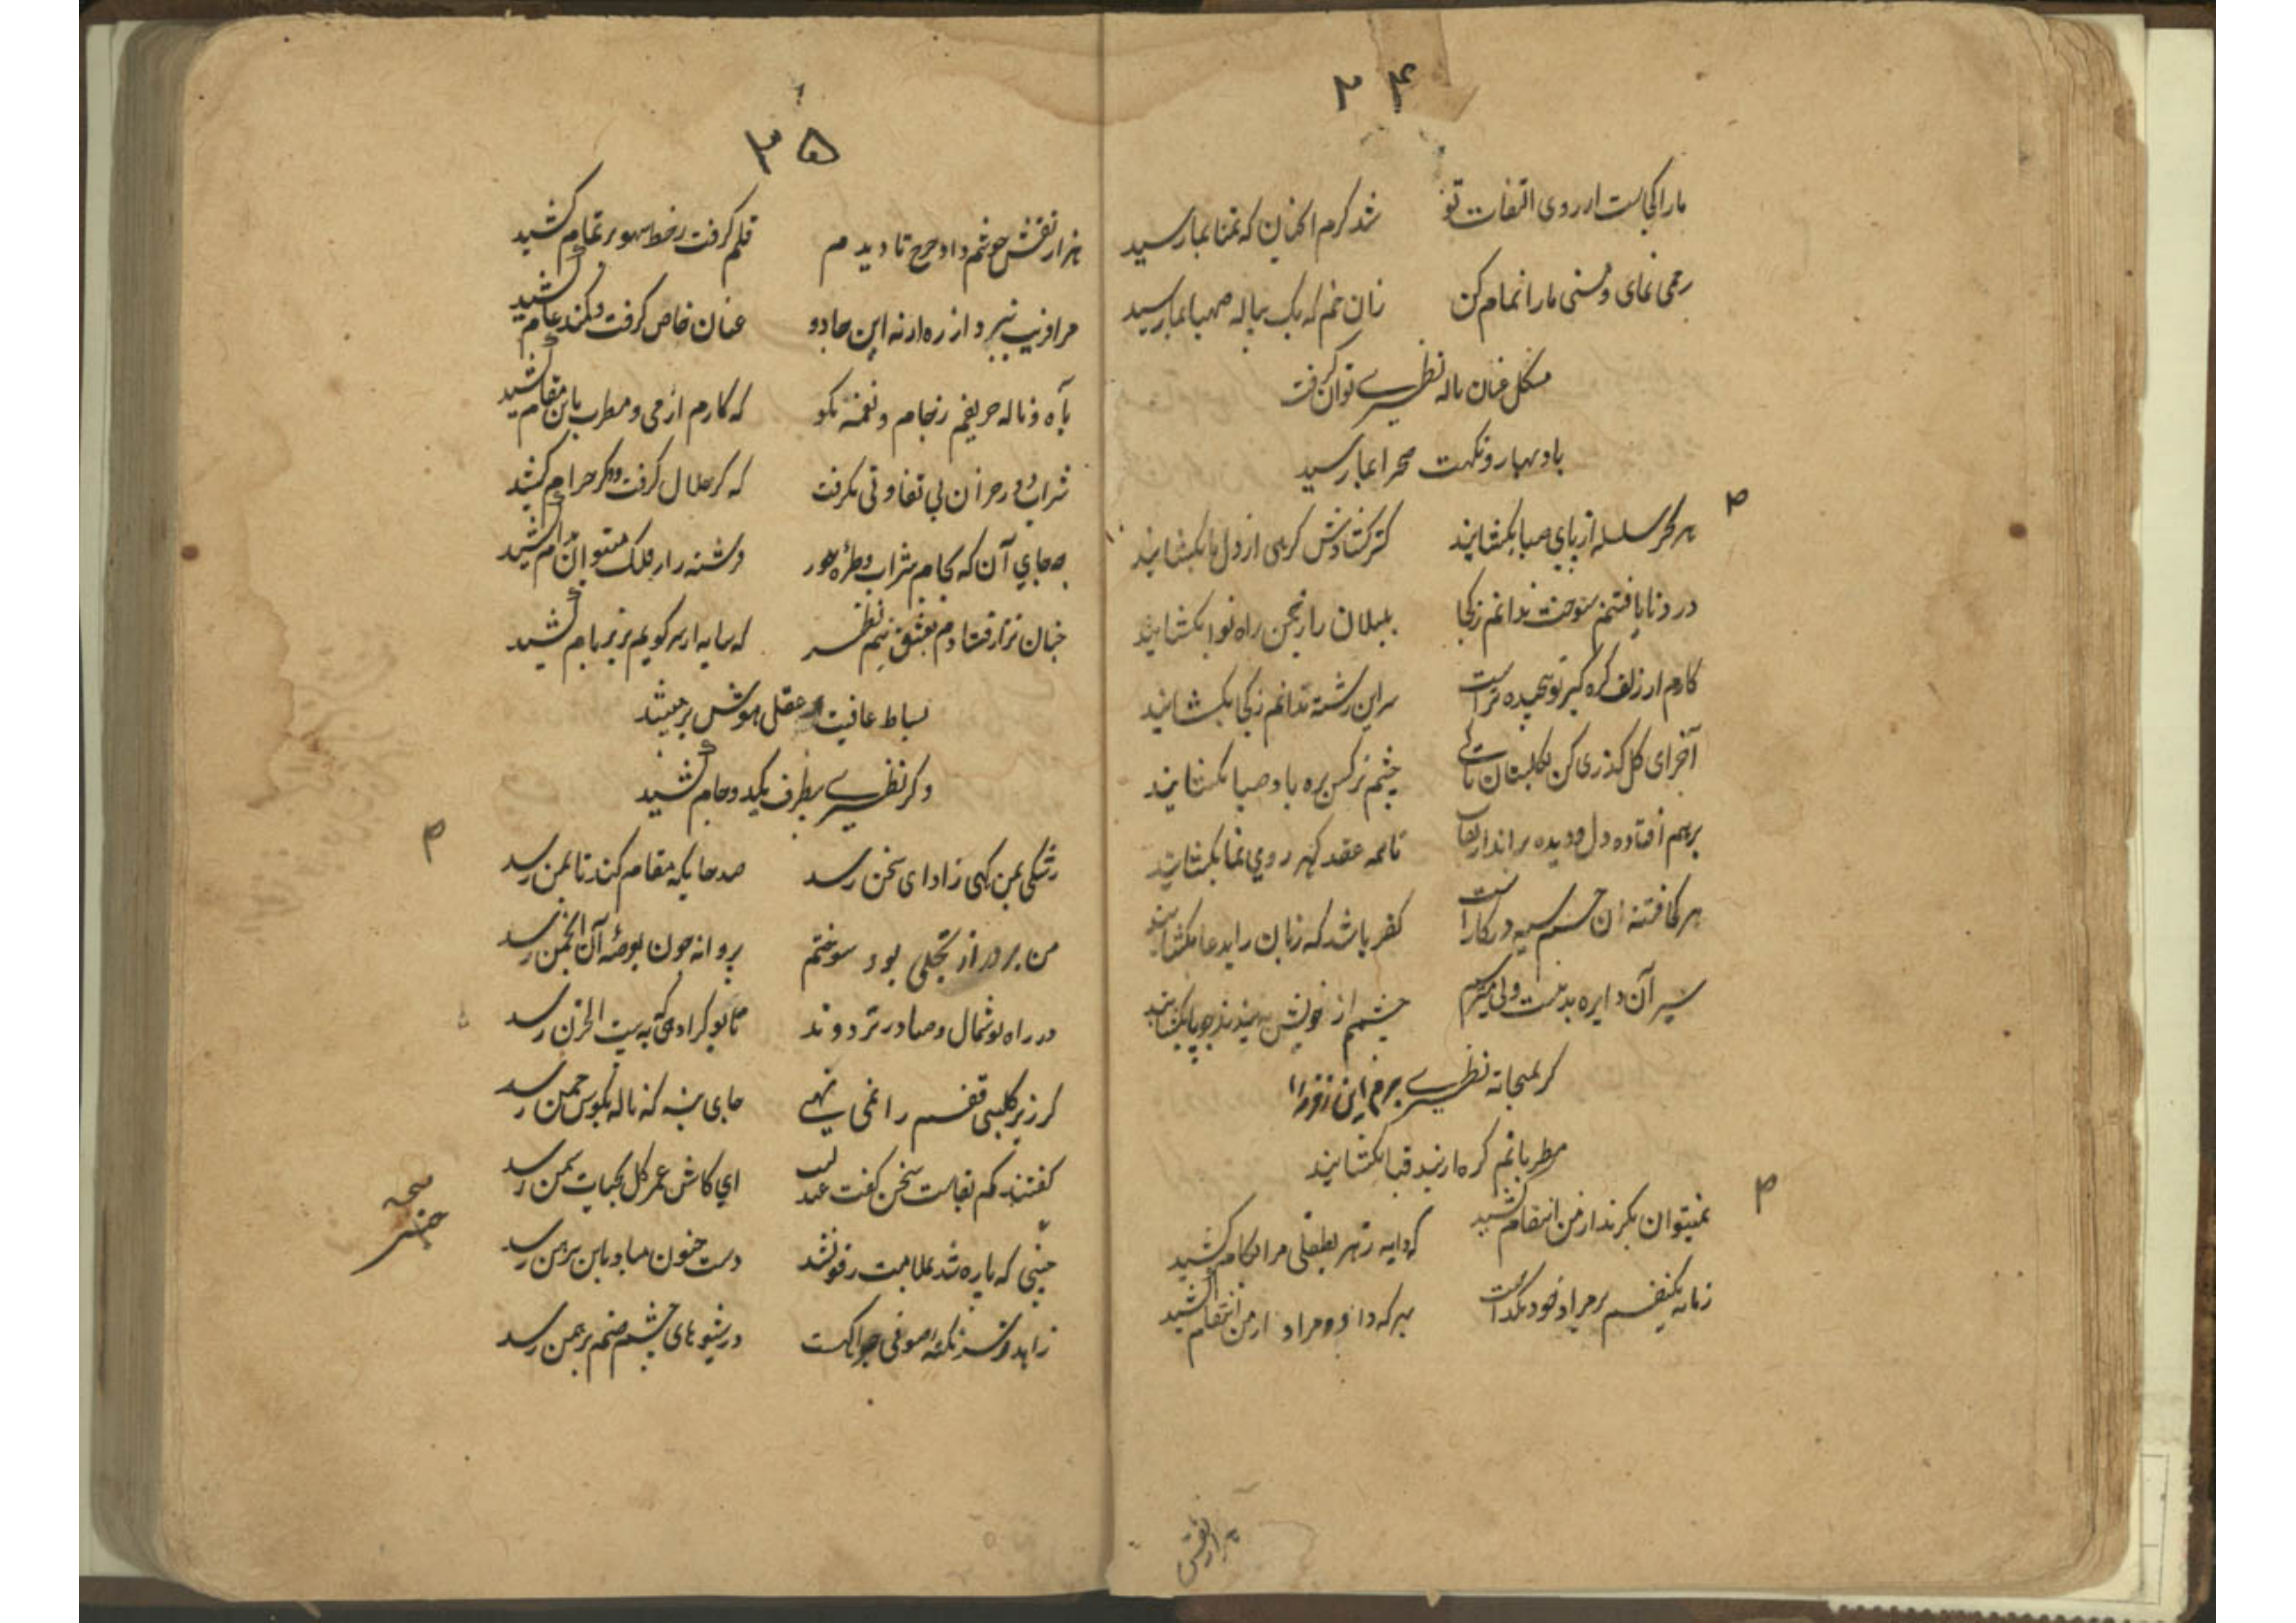 ۲۴
ما را کجاست از روی التفات تو شد گرم آنچنان که تمنا بما رسید
رحمی نمای و مستی ما را تمام کن زان خم که یک پیاله صهبا بما رسید
مشکل عنان ناله نظیری توان گرفت
باد بهار و نکهت صحرا بما رسید
هر سحر سلسله از پای صبا بکشایند کز کشادش گرهی از دل ما بکشایند
درد نایافتنم سوخت ندانم ز کجا بلبلان را ز چمن راه نوا بکشایند
کارم از زلف گره گیر تو پیچیده تر است سر این رشته ندانم ز کجا بکشایند
آخر ای گل گذری کن بگلستان تا کی چشم نرگس بره باد صبا بکشایند
برهم افتاده دل و دیده برانداز نقاب تا همه عقد گهر روی نما بکشایند
هر کجا فتنه آن چشم سیه در کار است کفر باشد که زبان را بدعا بکشایند
سیر آن دایره بد نیست ولی میترسم چشم از خویش ببندند چو پا بکشایند
گر بمیخانه نظیری برم این زورا
مطربانم گره از بند قبا بکشایند
نمیتوان بگزند از من انتقام کشید که دایه زهر بطفلی مرا بکام کشید
زمانه یکنفسم بر مراد خود نگذاشت بهر که داد مراد از من انتقام کشید
هزار نقش
۳۵
هزار نقش خوشم داد چرخ تا دیدم قلم گرفت و خط سهو بر تمام کشید
مرا فریب نبرد از ره ار نه این جادو عنان خاص گرفت و کمند عام کشید
بآه و ناله حریفم ز جام و نغمه مگو که کارم از می و مطرب باین مقام کشید
شراب و در حرفان بی تفاوتی نگرفت که گر حلال گرفت و گر حرام کشید
به جای آن که بجام شراب و طره حور فرشته را ز فلک میتوان بدام کشید
چنان نزار فتادم بعشق نیم نظر که سایه از سر کویم بزیر بام کشید
بساط عافیت و عقل و هوش برچیند
و گر نظیری بطرف یکید و جام کشید
رشکی بمن کهی ز ادای سخن رسد صد جا یکه مقام کند تا بمن رسد
من بر در از تجلی بود سوختم پروانه چون بوصله آن انجمن رسد
در راه تو شمال و صبا در تردوند تا بو کرا دهی که به بیت الحزن رسد
گر زیر گلبنی قفسم را نمی نهی جای بنه که ناله بگوش چمن رسد
گفتند کم بقاست سخن گفت عندلیب ای کاش عمر گل بحیات سخن رسد
جیبی که پاره شد بملامت رفو نشد دست جنون مباد باین پیرهن رسد
زاهد فسرد نکته صوفی چرا کست در شیوهای چشم صنم برهمن رسد